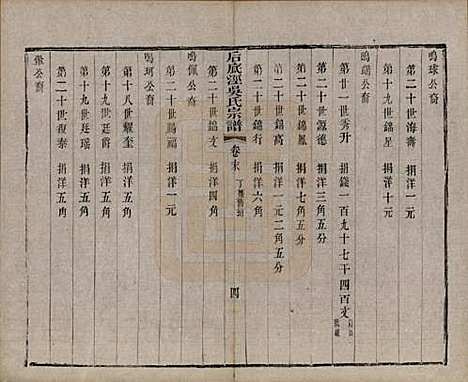 鳴球公裔
第二十世海壽 捐洋一元
第十九世錫星 捐洋十元
鳴瑞公裔
第廿一世秀升 捐錢一百九十七千四百文
第二十世錫德 捐洋三角五分
第二十世錫 捐洋七角五分
第二十世錫高 捐洋一元二角五分
第二十世錦行 捐洋六角
后底涇吳氏宗譜 卷末 四
第二十世錦文 捐洋四角
鳴佩公裔
第二十世錫福 捐洋一元
鳴珂公裔
第十八世耀奎 捐洋五角
第十九世廷瑤 捐洋五角
第十九世廷爵 捐洋五角
第二十世復泰 捐洋五角
公裔